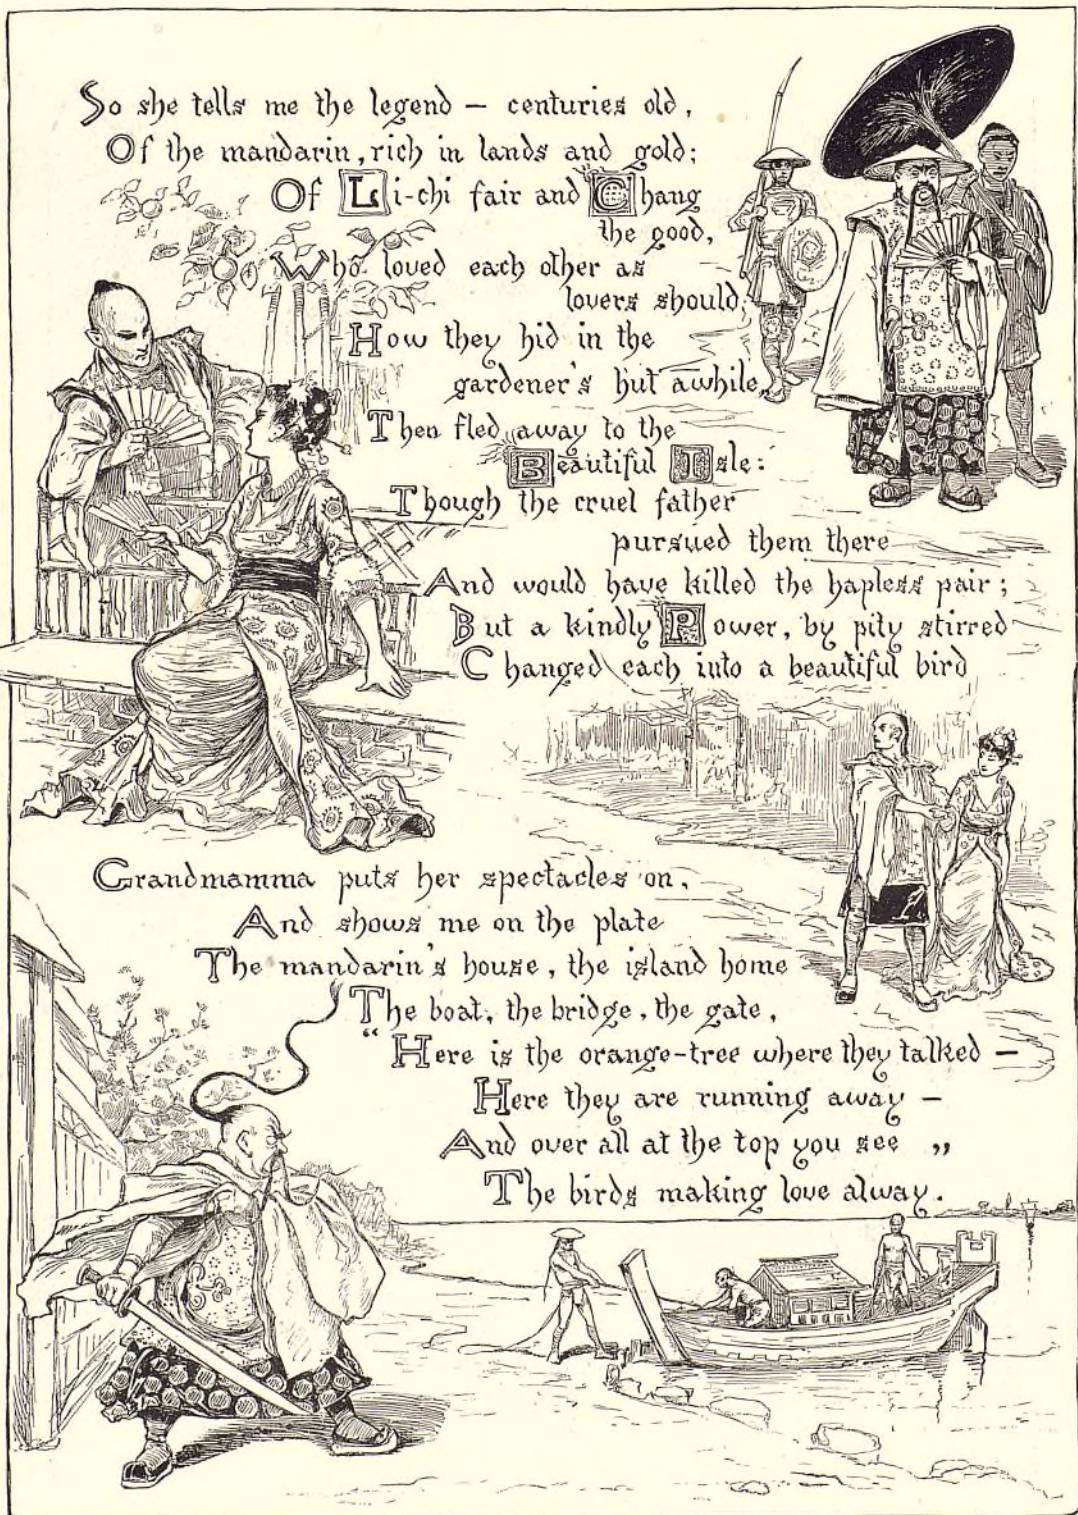 So she tells me the legend – centuries old,
Of the mandarin, rich in lands and gold;
Of Li-chi fair and Chang
the good,
Who loved each other as
lovers should;
How they hid in the
gardener's hut awhile,
Then fled away to the
Beautiful Isle:
Though the cruel father
pursued them there
And would have killed the hapless pair;
But a kindly Power, by pity stirred
Changed each into a beautiful bird
Grandmamma puts her spectacles on,
And shows me on the plate
The mandarin's house, the island home
The boat, the bridge, the gate,
“Here is the orange-tree where they talked –
Here they are running away –
And over all at the top you see ”
The birds making love alway.